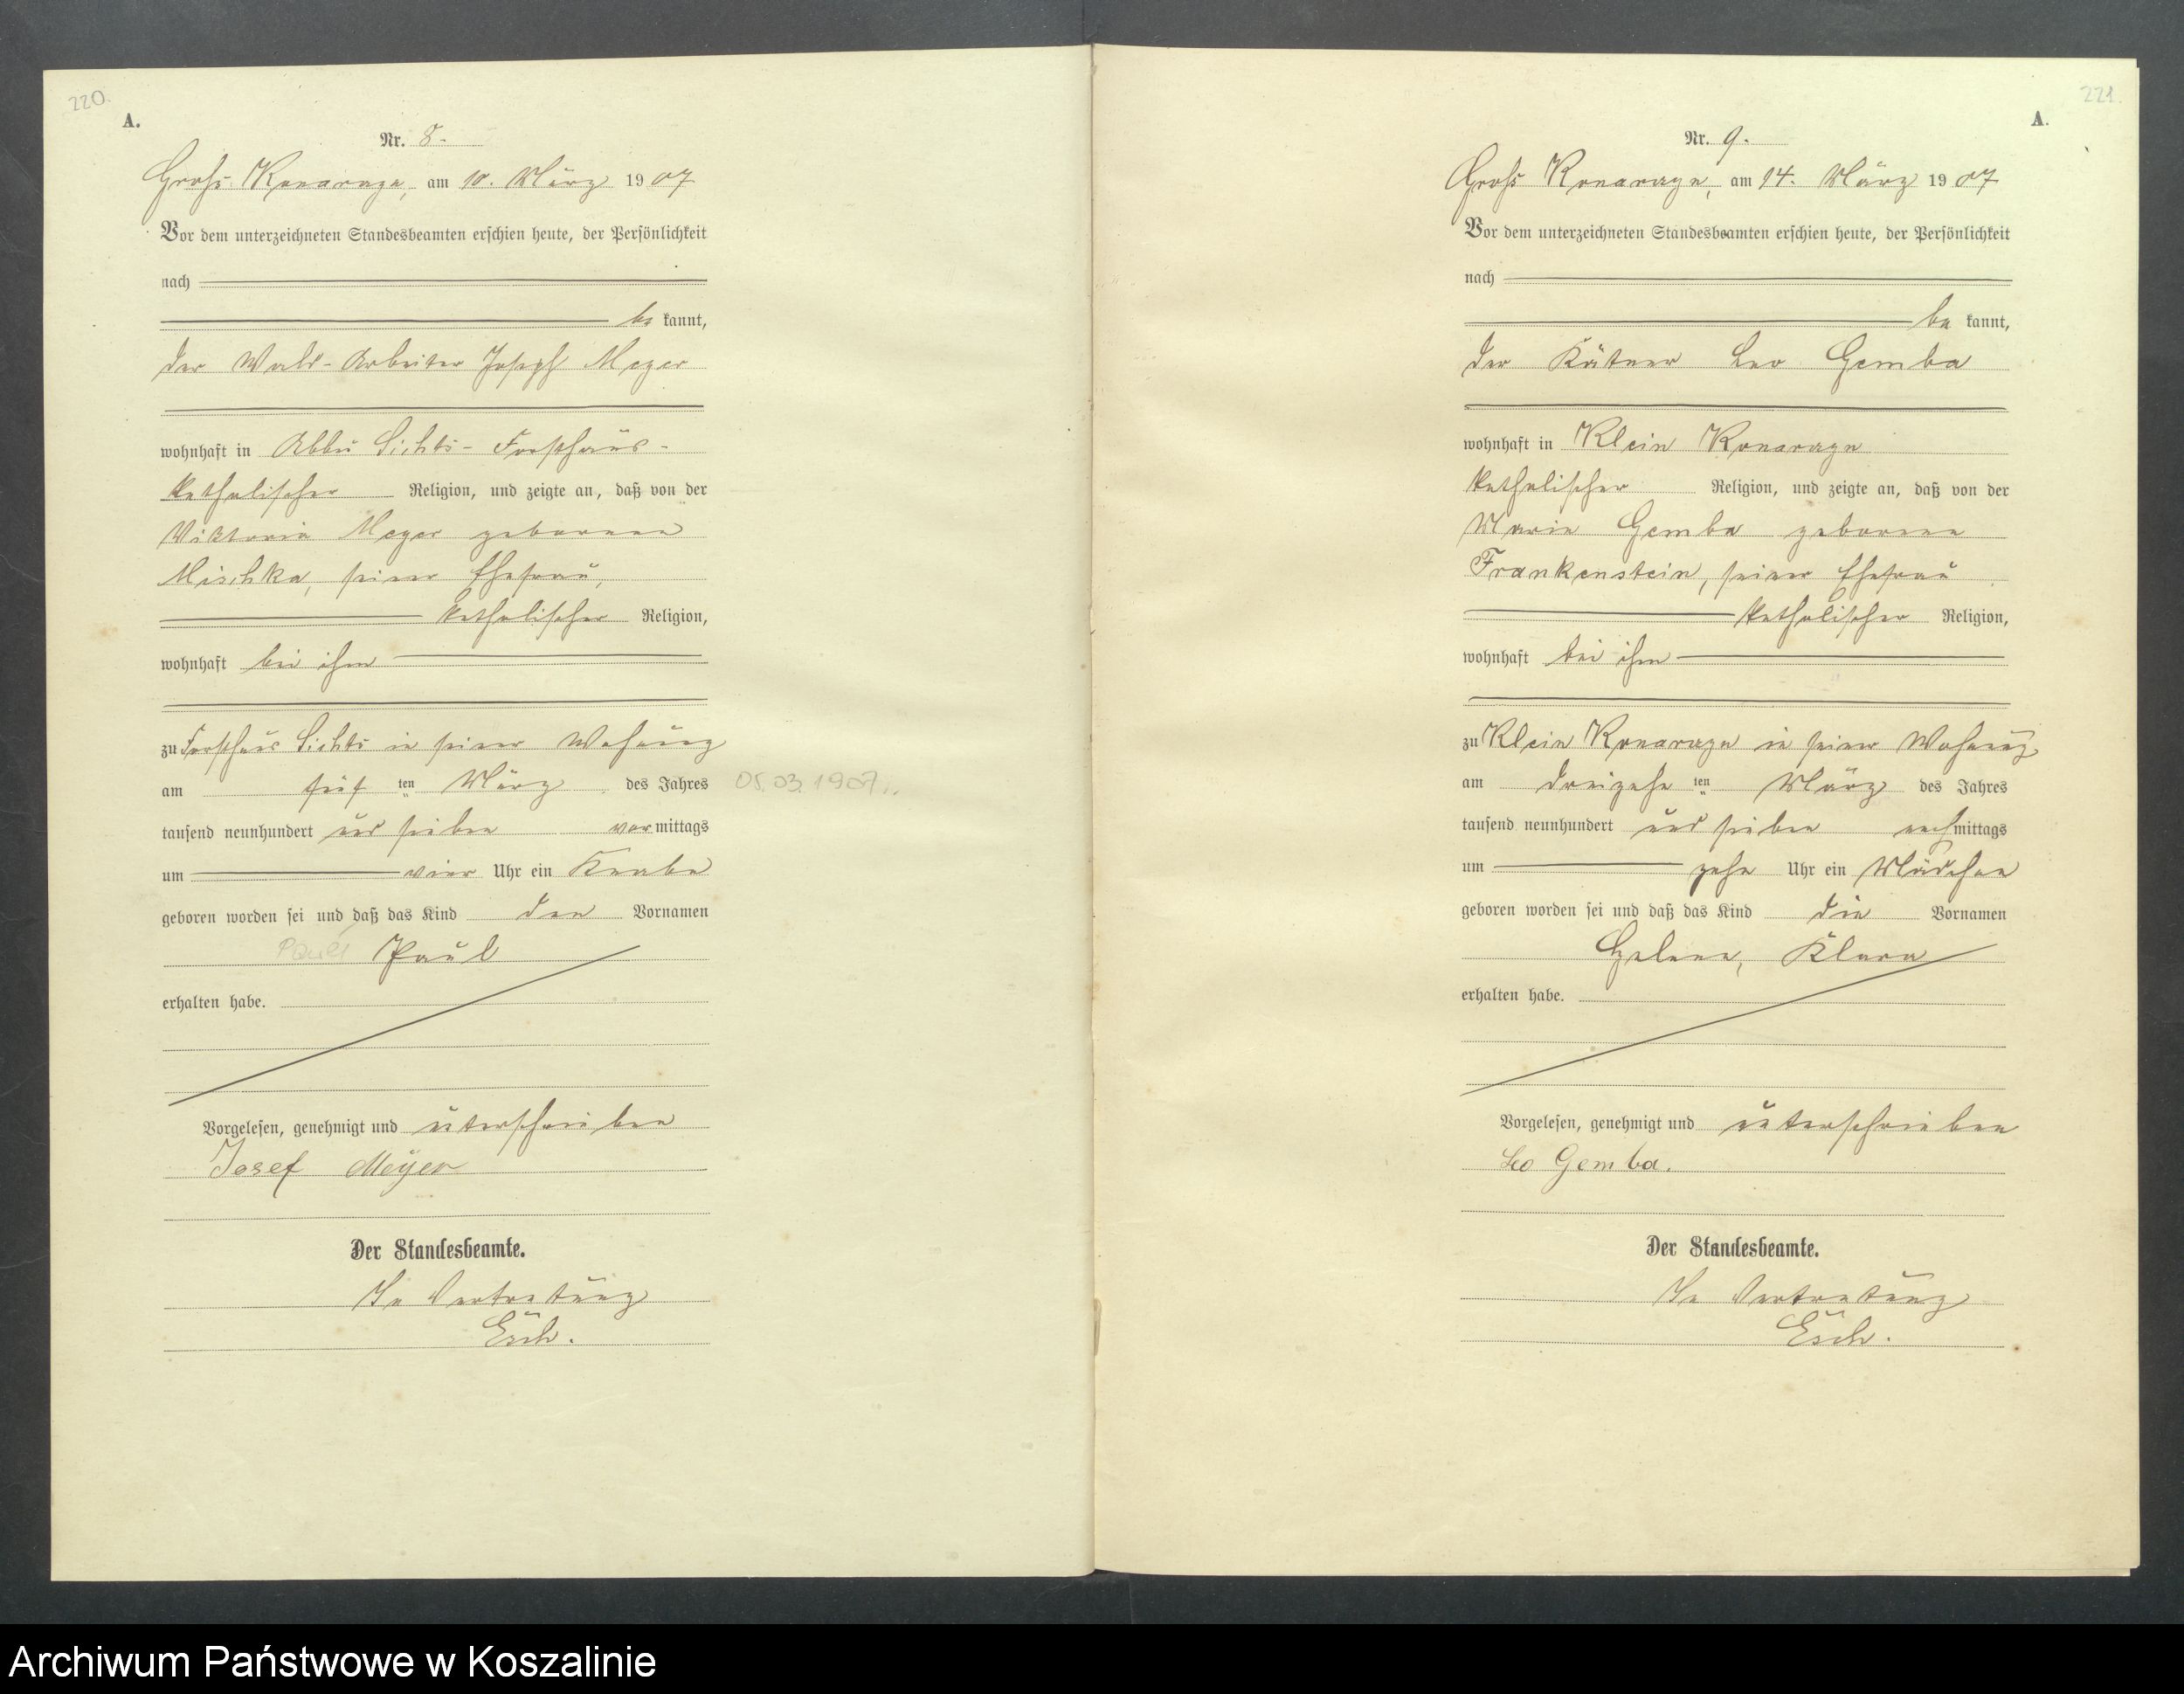 220.
A.
Nr. 8.
Gross Konarzyn, am 10. März 1907
Vor dem unterzeichneten Standesbeamten erschien heute, der Persönlichkeit
nach
be kannt,
der Wald-Arbeiter Joseph Meyer
wohnhaft in Abbau Forsthaus-
katholischer Religion, und zeigte an, daß von der
Viktoria Meyer geborenen
Mischka, seiner Ehefrau,
katholischer Religion,
wohnhaft bei ihm
zu Forsthaus in seiner Wohnung
am fünf ten März des Jahres 05.03.1907
tausend neunhundert und sieben vormittags
um vier Uhr ein Knabe
geboren worden sei und daß das Kind den Vornamen
Paul Paul
erhalten habe.
Vorgelesen, genehmigt und unterschrieben
Josef Meyer
Der Standesbeamte.
In Vertretung
Esch.
221.
A.
Nr. 9.
Gross Konarzyn, am 14. März 1907
Vor dem unterzeichneten Standesbeamten erschien heute, der Persönlichkeit
nach
be kannt,
der Kätner Leo Gemba
wohnhaft in Klein Konarzyn
katholischer Religion, und zeigte an, daß von der
Maria Gemba geborene
Frankenstein, seiner Ehefrau
katholischer Religion,
wohnhaft bei ihm
zu Klein Konarzyn in seiner Wohnung
am dreizehn ten März des Jahres
tausend neunhundert und sieben nachmittags
um zehn Uhr ein Mädchen
geboren worden sei und daß das Kind die Vornamen
Helene, Klara
erhalten habe.
Vorgelesen, genehmigt und unterschrieben
Leo Gemba.
Der Standesbeamte.
In Vertretung
Esch.
Archiwum Państwowe w Koszalinie